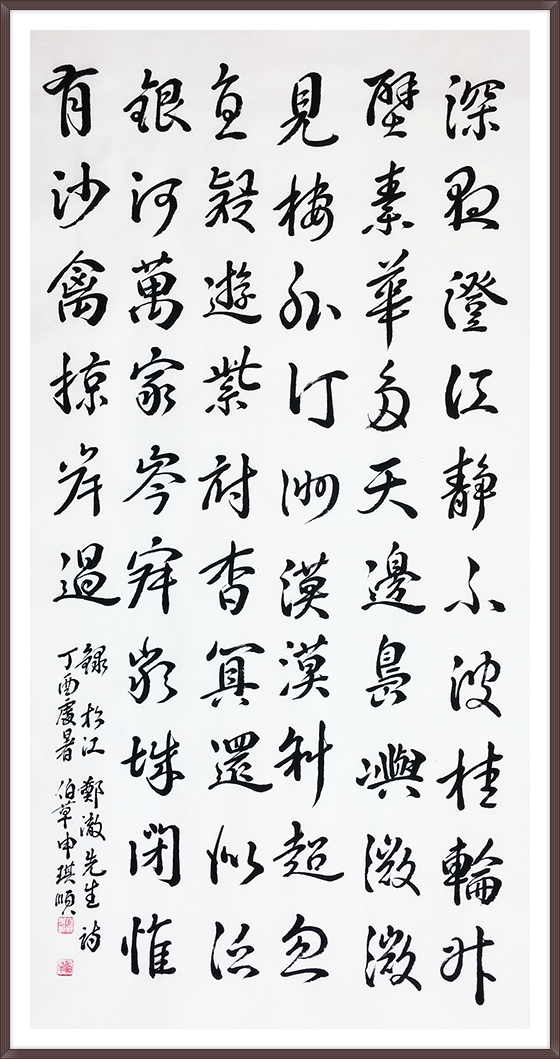 深夜澄江静不波桂輪升
壁素華多天邊島嶼微微
見樓外汀洲漠漠斜超忽
直疑遊紫府杳冥還似泛
銀河萬家岑寂嚴城閉惟
有沙禽掠岸過
錄松江鄭澈先生詩
丁酉處暑伯草申琪順